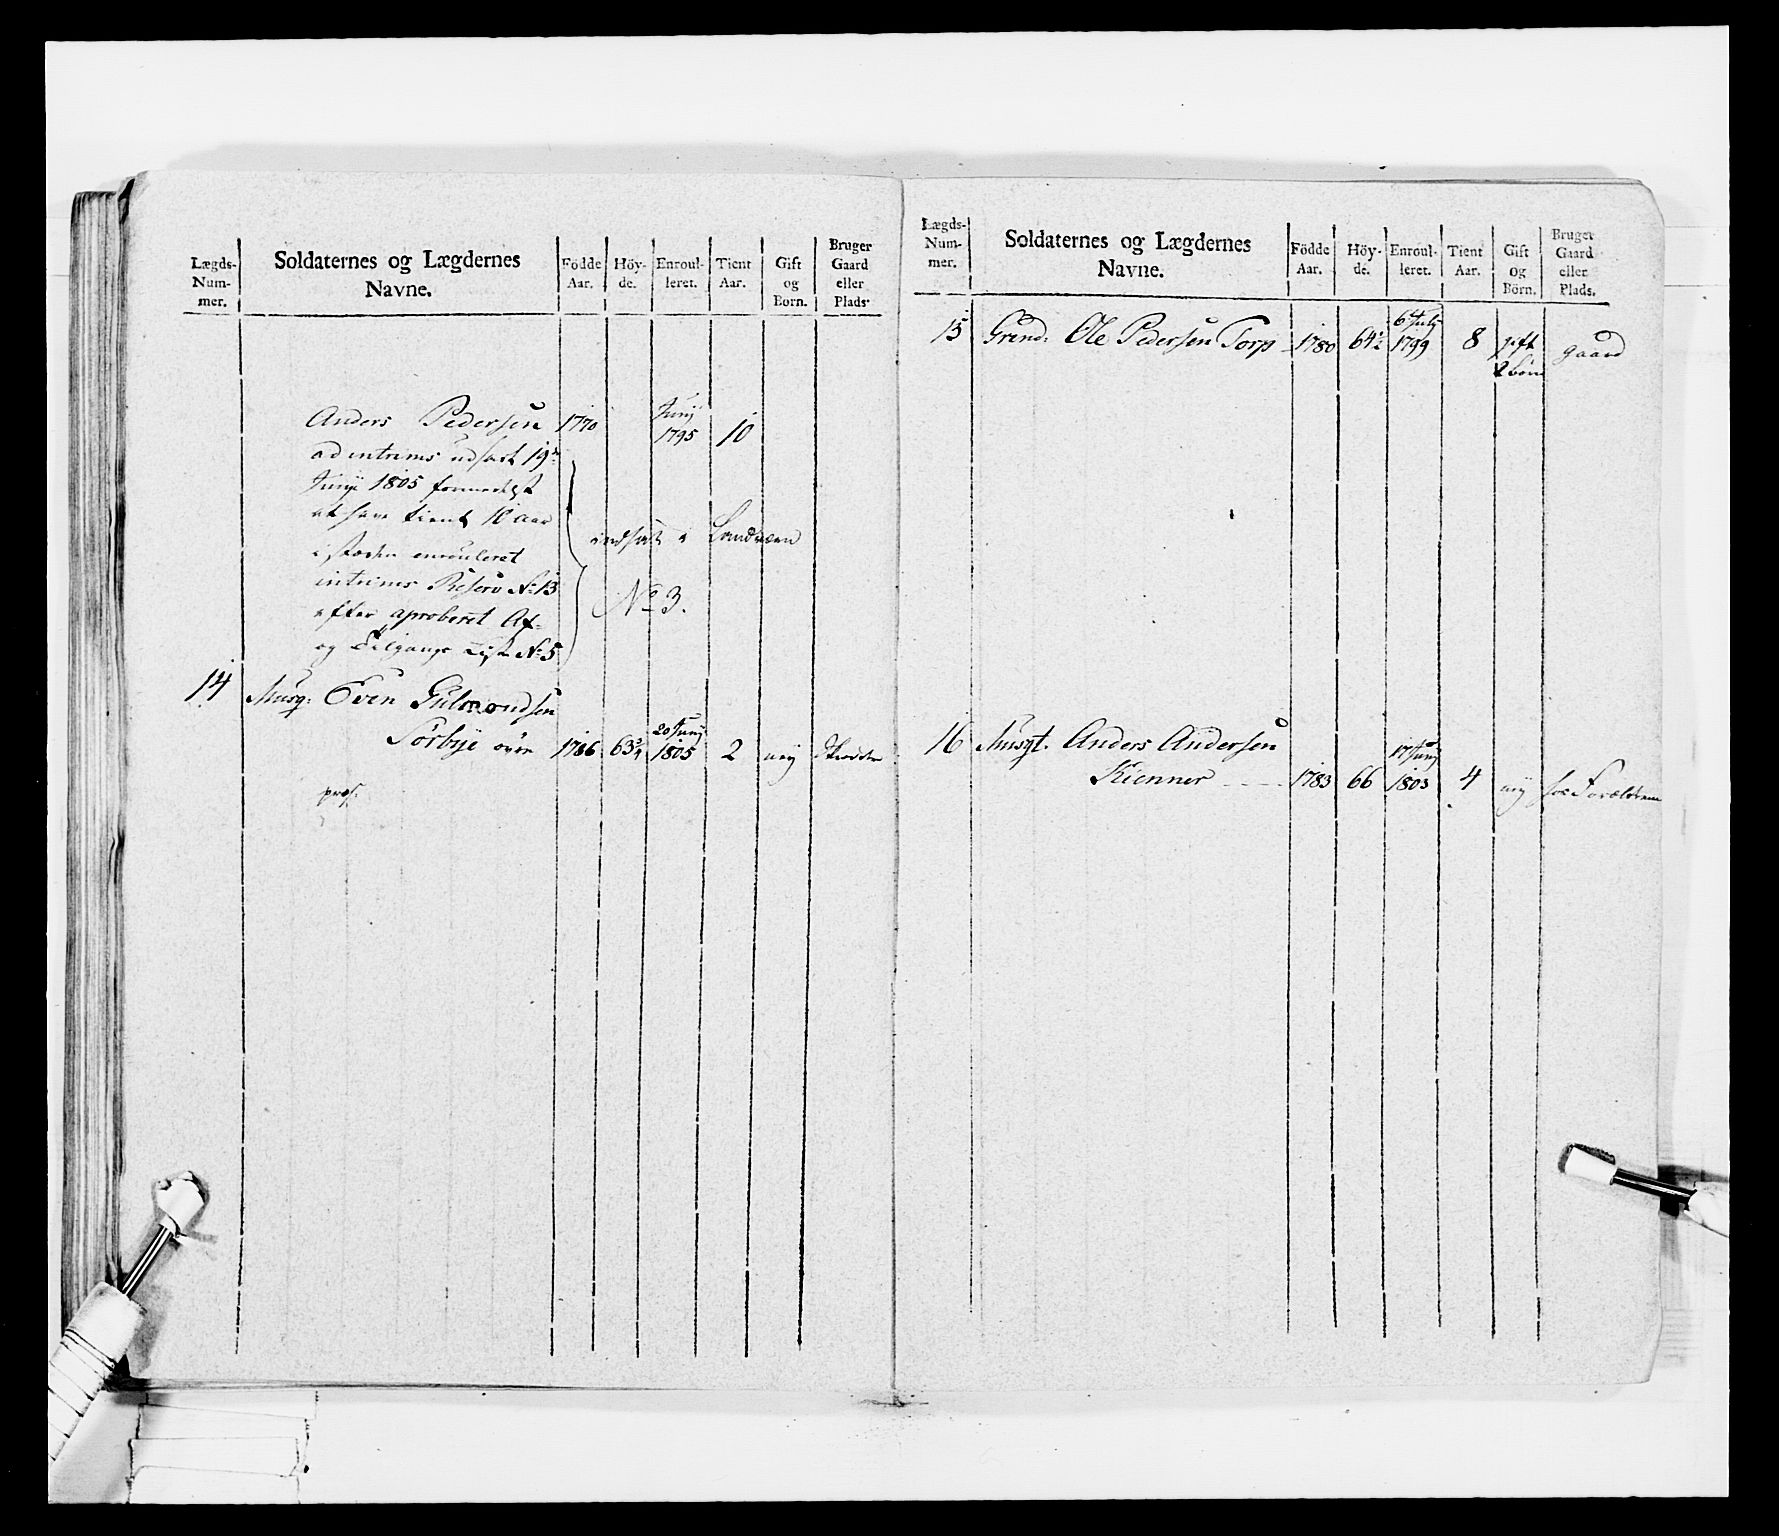 Lægds-Num-mer. Soldaternes og Lægdernes Navne. Födde Aar. Höy-de. Enroul-leret. Tient Aar. Gift og Börn. Bruger Gaard eller Plads.
Anders Pedersen 1770 Junij 1795 10
ad intrims udsat 19de
Junji 1805 formedelst
at have tient 10 aar
i stæden enrouleret
intrims Reserv No 13
efter aproberet Af-
og Tilgangs List No 5
indsat i Landværn
No 3.
14 Musq: Even Gulmondsen
Sörbye övre 1786 63 3/4 20 Junij 1805 2 ney Skredder
pres:
Lægds-Num-mer. Soldaternes og Lægdernes Navne. Födde Aar. Höy-de. Enroul-leret. Tient Aar. Gift og Börn. Bruger Gaard eller Plads.
15 Grend: Ole Pedersen Torp 1780 64 1/2 6 July 1799 8 gift 2 börn gaard
16 Musqt. Anders Andersen
Kienner 1783 66 17 Junij 1803 4 ney hos Forældrene